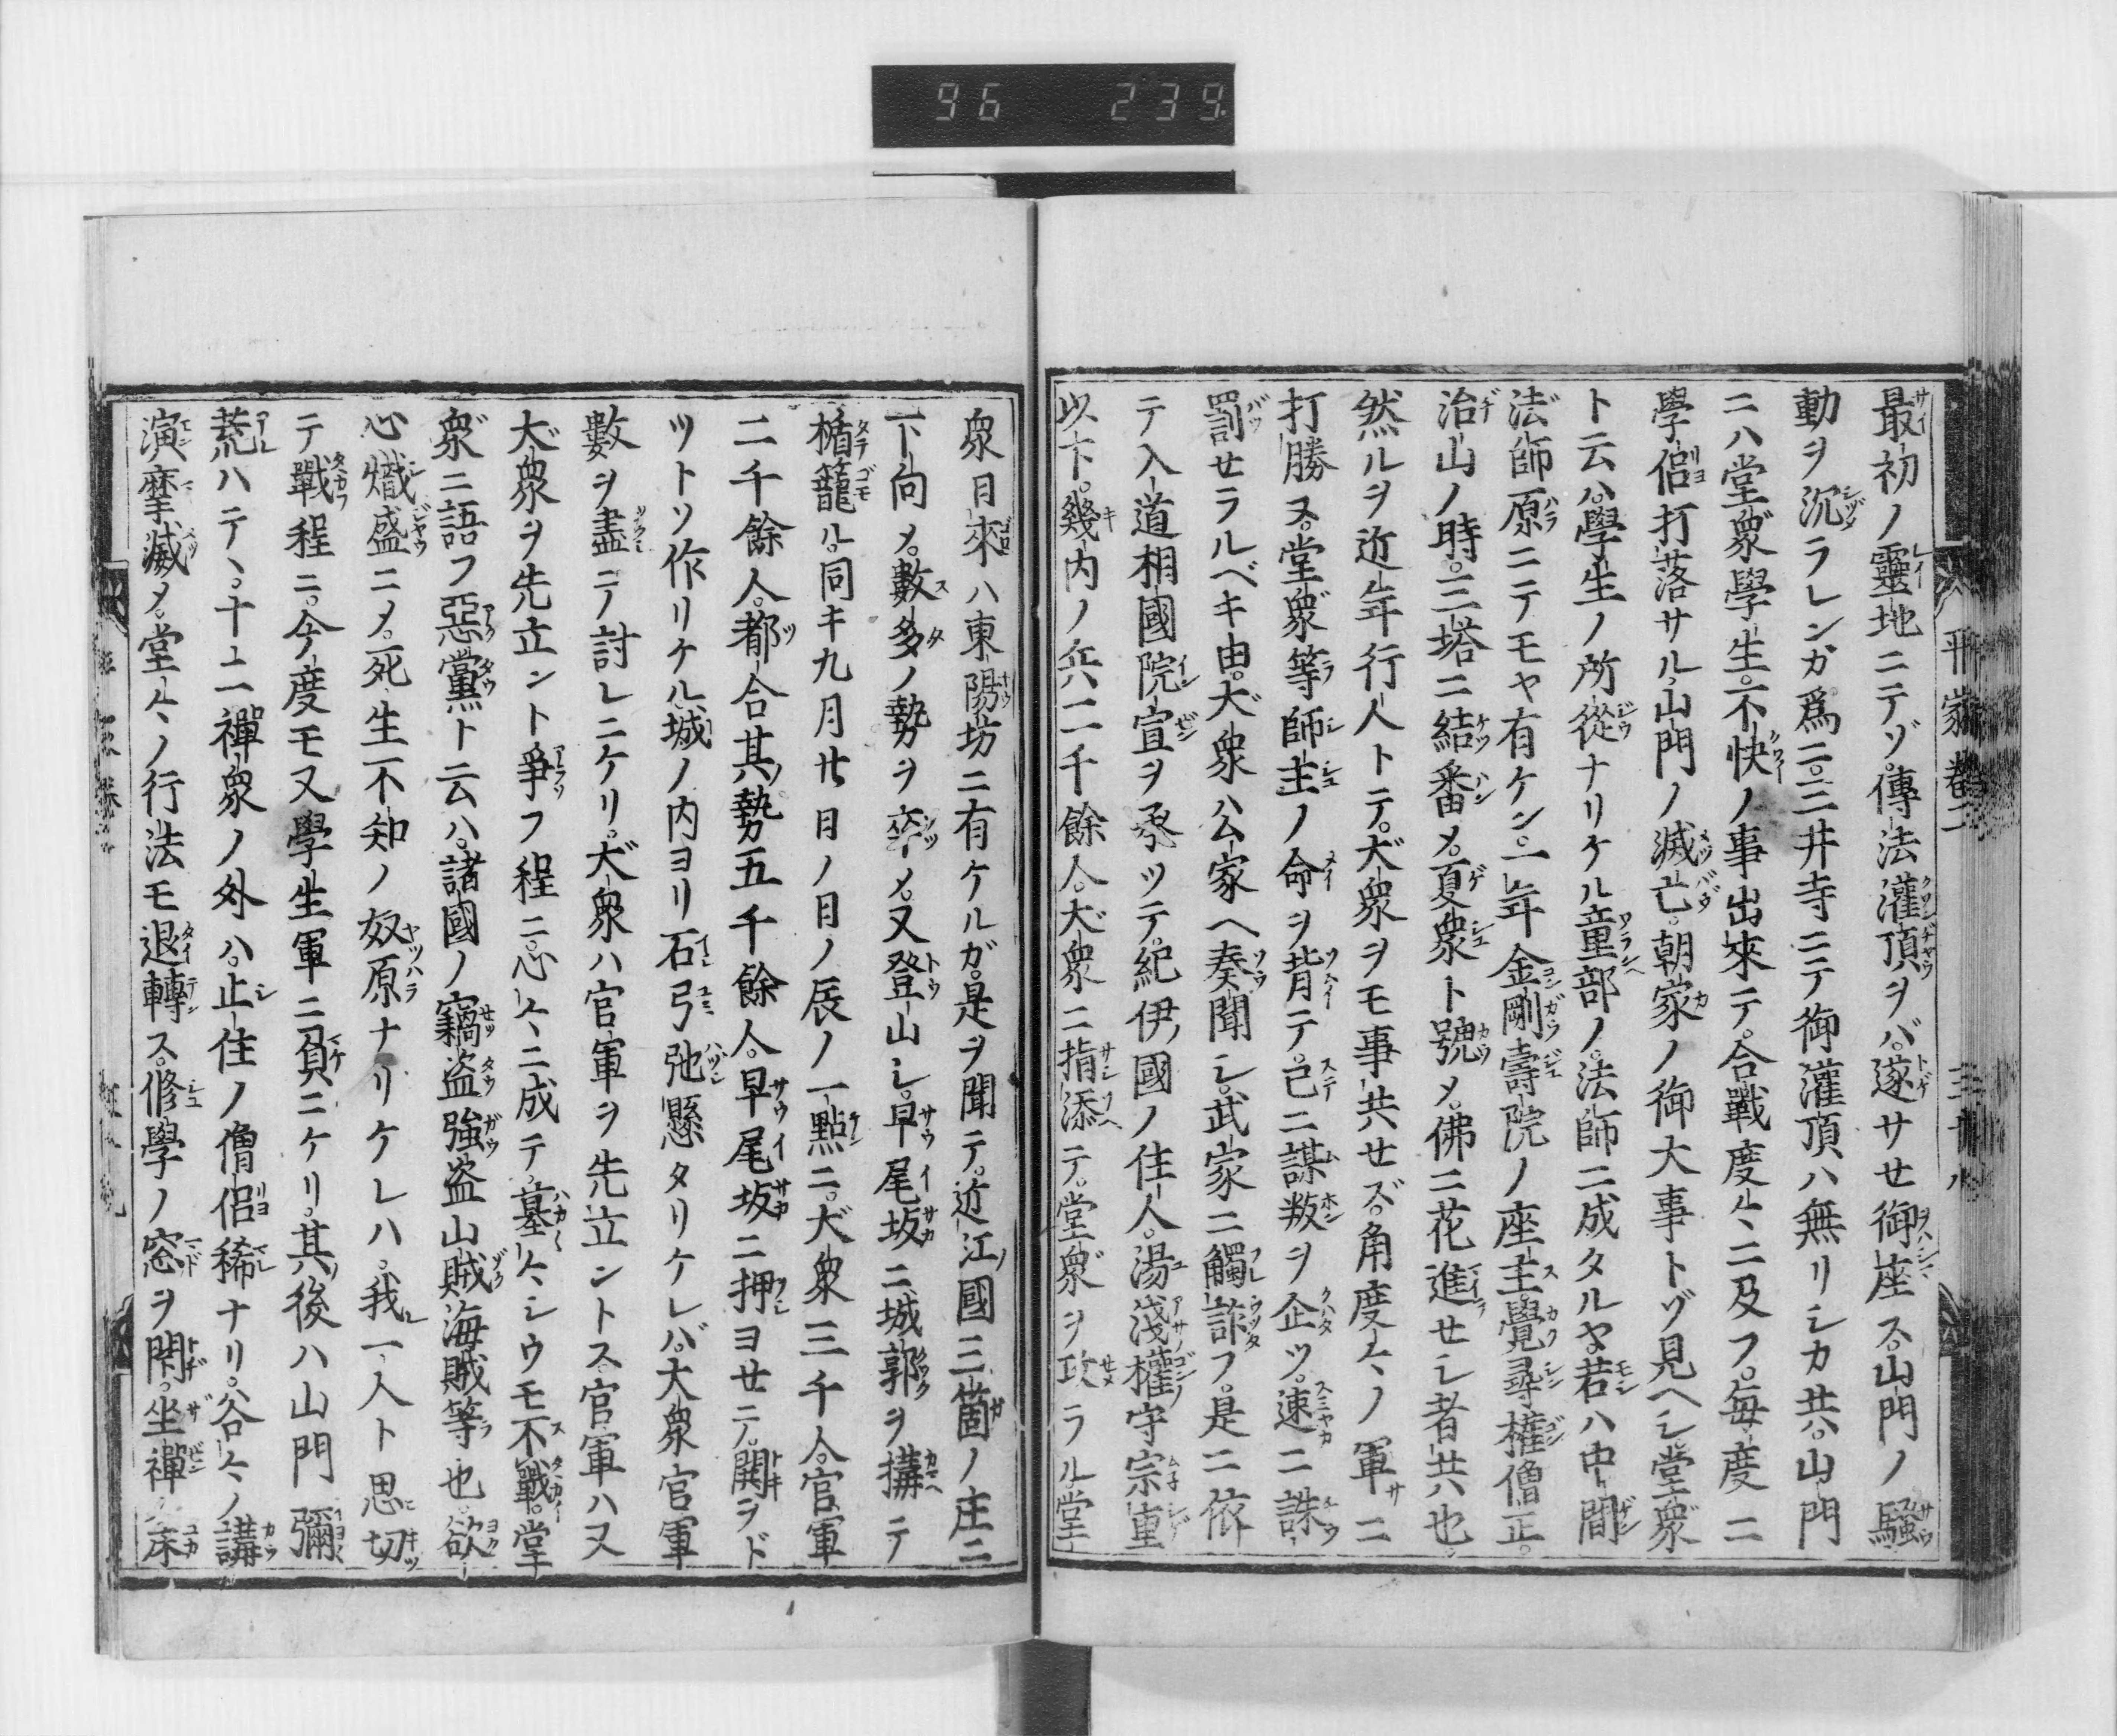 96 239
平家巻二
最初ノ靈地ニテゾ傳法灌頂ヲバ遂サセ御座ス山門ノ騷
動ヲ沉ラレンガ爲ニ三井寺ニテ御灌頂ハ無リシカ共山門
ニハ堂衆學生不快ノ事出來テ合戰度々ニ及フ毎度ニ
學侶打落サル山門ノ滅亡朝家ノ御大事トゾ見ヘシ堂衆
ト云ハ學生ノ所從ナリケル童部ノ法師ニ成タルヤ若ハ中間
法師原ニテモヤ有ケン一年金剛壽院ノ座主覺尋權僧正
治山ノ時三塔ニ結番メ夏衆ト號メ佛ニ花進セシ者共也
然ルヲ近年行人トテ大衆ヲモ事共セズ角度々ノ軍ニ
打勝ヌ堂衆等師主ノ命ヲ背テ已ニ謀叛ヲ企ツ速ニ誅
罰セラルベキ由大衆公家ヘ奏聞シ武家ニ觸訴フ是ニ依
テ入道相國院宣ヲ承ツテ紀伊國ノ住人湯淺權守宗重
以下幾内ノ兵二千餘人大衆ニ指添テ堂衆ヲ攻ラル堂
衆日來ハ東陽坊ニ有ケルガ是ヲ聞テ近江國三箇ノ庄ニ
下向メ數多ノ勢ヲ卒メ又登山シ早尾坂ニ城郭ヲ搆テ
楯籠ル同キ九月廿日ノ日ノ辰ノ一點ニ大衆三千人官軍
二千餘人都合其勢五千餘人早尾坂ニ押ヨセテ閧ヲド
ツトソ作リケル城ノ内ヨリ石弓弛懸タリケレバ大衆官軍
數ヲ盡ニノ討レニケリ大衆ハ官軍ヲ先立ントス官軍ハ又
大衆ヲ先立ント爭フ程ニ心々ニ成テ墓々シウモ不戰堂
衆ニ語フ惡黨ト云ハ諸國ノ竊盗強盗山賊海賊等也欲
心熾盛ニメ死生不知ノ奴原ナリケレハ我一人ト思切
テ戰程ニ今度モ又學生軍ニ負ニケリ其後ハ山門彌
荒ハテヽ十二禪衆ノ外ハ止住ノ僧侶稀ナリ谷々ノ講
演摩滅メ堂々ノ行法モ退轉ス修學ノ窓ヲ閇坐禪ノ床